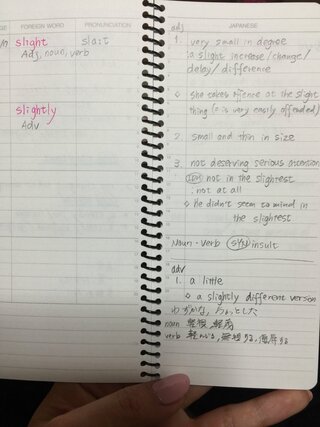 GE FOREIGN WORD PRONUNCIATION
slight slait
Adj, noun, verb
slightly
Adv
JAPANESE
adj
1. very small in degree
a slight increase/change/
delay/difference
◇ she takes offence at the slight
thing (= is very easily offended)
2. small and thin in size
3. not deserving serious attention
not in the slightest
not at all
◇ He didn't seem to mind in
the slightest
Noun・verb SYN insult
adv
1. a little
◇ a slightly different version
わずかな, ちょっとした
noun 軽蔑, 軽蔑
verb 軽んじる, 無視する, 侮辱する